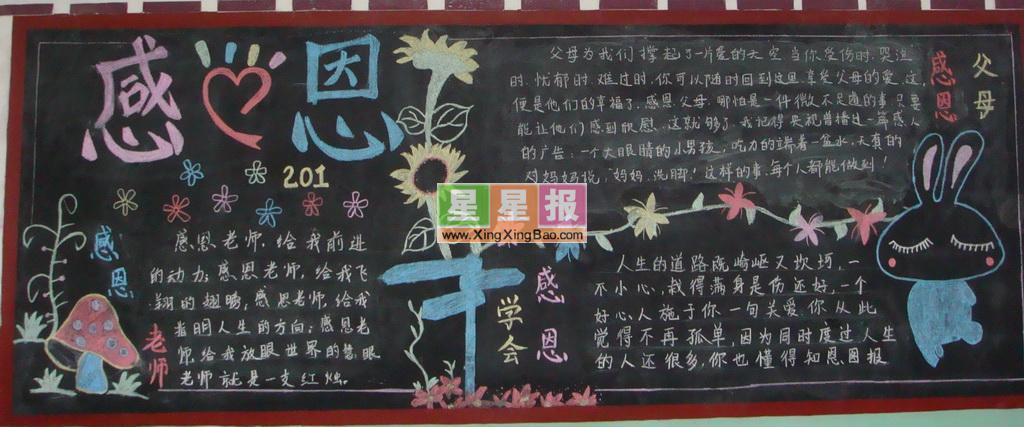 感恩
201
感恩
老师
感恩老师,给我前进
的动力;感恩老师,给我飞
翔的翅膀;感恩老师,给我
指明人生的方向;感恩老
师,给我放眼世界的慧眼
老师就是一支红烛。
星星报
www.XingXingBao.com
感恩
父母
父母为我们撑起了一片爱的天空 当你受伤时、哭泣
时、忧郁时、难过时、你可以随时回到这里 享受父母的爱、这
便是他们的幸福了、感恩父母、哪怕是一件微不足道的事、只要
能让他们感到欣慰、这就够了、我记得央视曾播过一篇感人
的广告:一个大眼睛的小男孩,吃力的端着一盆水,天真的
对妈妈说,"妈妈,洗脚!"这样的事、每个人都能做到!
学会
感恩
人生的道路既崎岖又坎坷,一
不小心,栽得满身是伤 还好,一个
好心人施于你一句关爱 你从此
觉得不再孤单,因为同时度过人生
的人还很多,你也懂得知恩图报